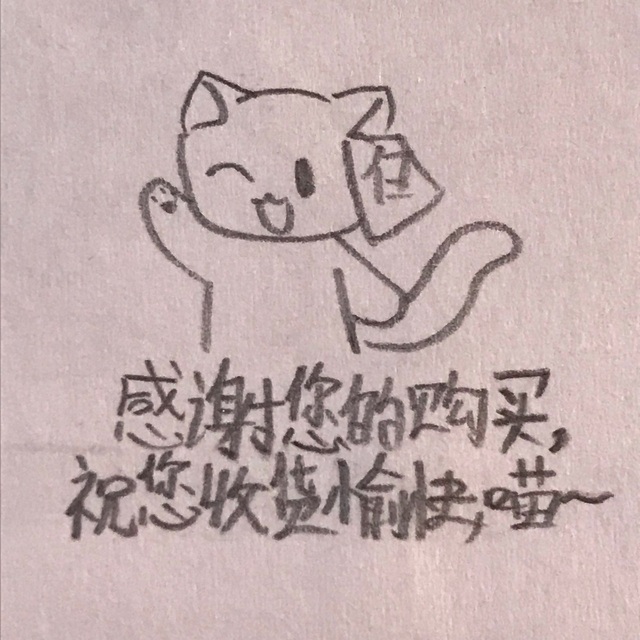 感谢您的购买,
祝您收货愉快,喵~